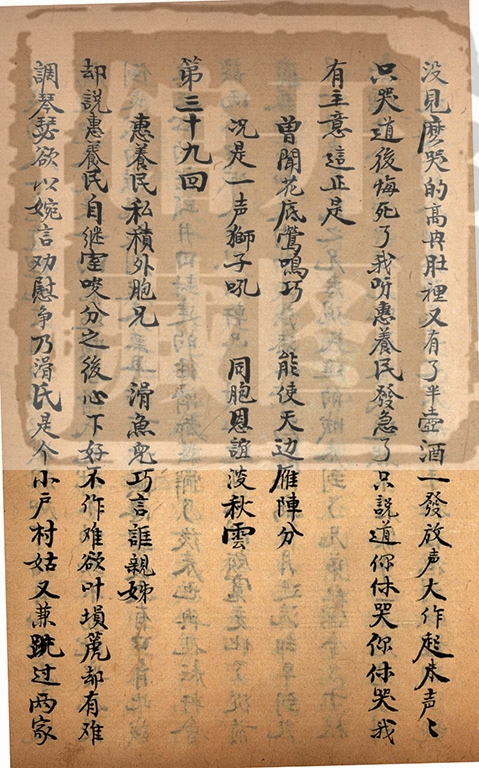 没見麽哭的高冉肚裡又有了半壺酒一發放声大作起来声〻
只哭道後悔死了我呀惠養民發急了只說道你休哭你休哭我
有主意這正是
曾聞花底鶯鳴巧 能使天边雁陣分
况是一声獅子吼 同胞恩誼淡秋雲
第三十九回
惠養民私積外胞兄 滑魚兒巧言誆親姊
却說惠養民自繼室唆分之後心下好不作难欲叶壎箎却有难
調琴瑟欲以婉言劝慰争乃滑氏是个小戸村姑又兼跳过两家